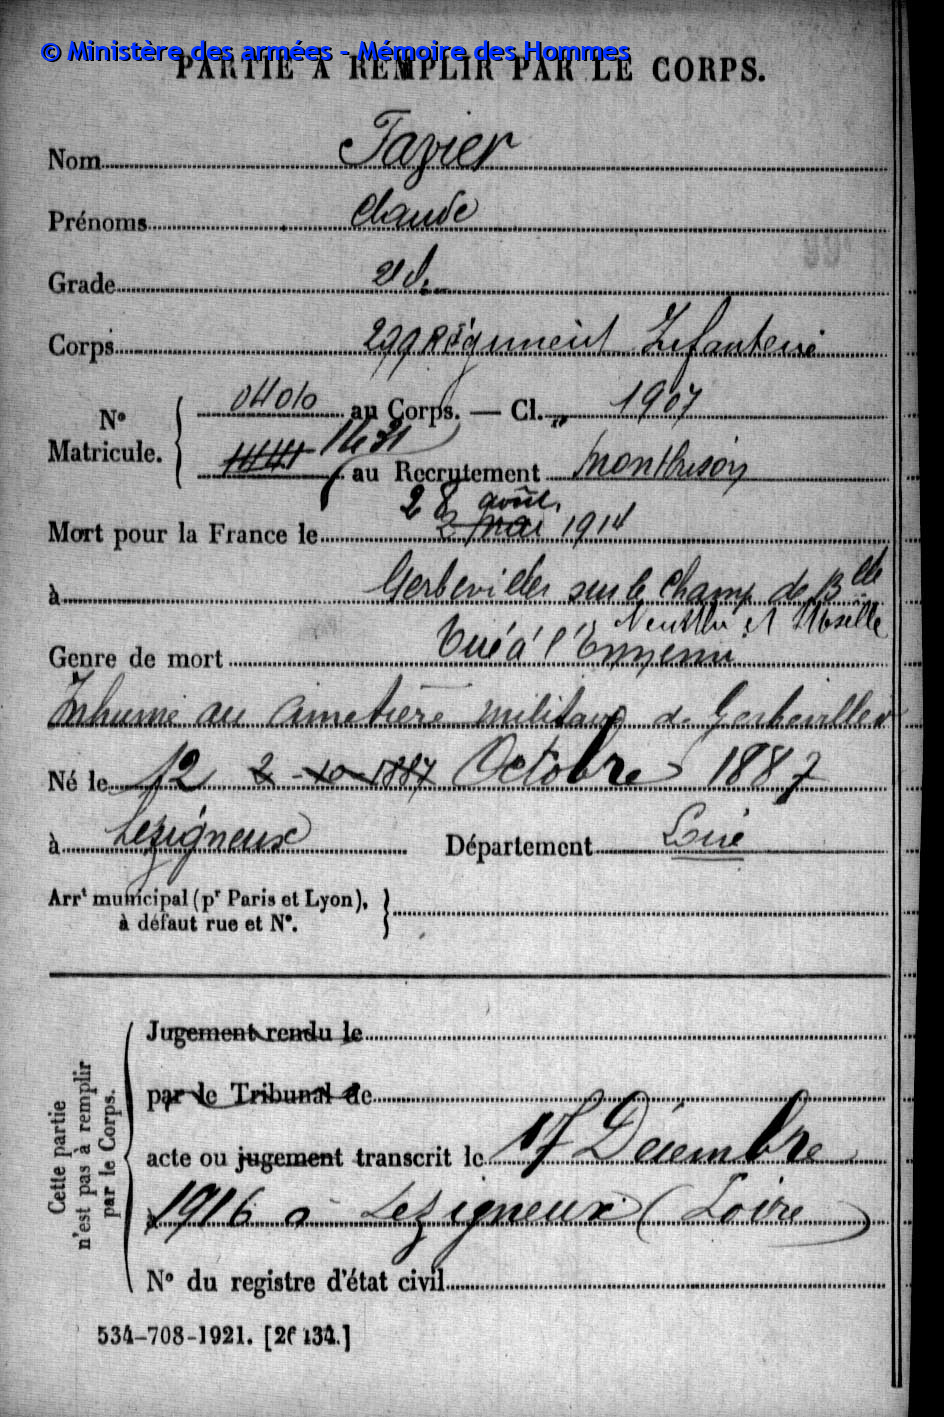 © Ministère des armées - Mémoire des Hommes
PARTIE À REMPLIR PAR LE CORPS.
Nom Favier
Prénoms Claude
Grade 2e
Corps 299 Régiment Infanterie
0400 au Corps. — Cl. 1907
N°
Matricule.
1431
au Recrutement Montbrison
28 août
Mort pour la France le 2 mai 1914
à Gerbeviller sur le Champ de Blle
Meurthe et Moselle
Genre de mort Tué à l'Ennemi
Inhumé au Cimetière militaire de Gerbeviller
Né le 12 2-10-1887 Octobre 1887
à Lezigneux Département Loire
Arrt municipal (pr Paris et Lyon),
à défaut rue et N°.
Cette partie
n'est pas à remplir
par le Corps.
Jugement rendu le
par le Tribunal de
acte ou jugement transcrit le 17 Décembre
1916 à Lezigneux (Loire)
N° du registre d'état civil
534-708-1921. [26434.]